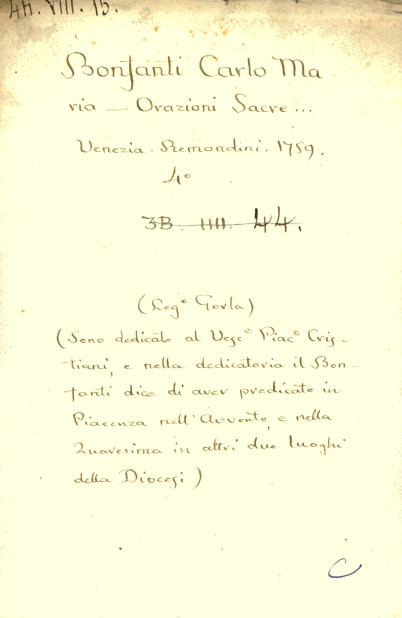 4H. VIII. 15.
Bonfanti Carlo Ma
ria — Orazioni Sacre...
Venezia. Remondini. 1759.
4º
3B. IIII. 44.
(Leg.º Gorla)
(Sono dedicate al Vesc.º Piac.º Cris-
tiani, e nella dedicatoria il Bon-
fanti dice di aver predicato in
Piacenza nell'Avvento, e nella
Quaresima in altri due luoghi
della Diocesi)
C